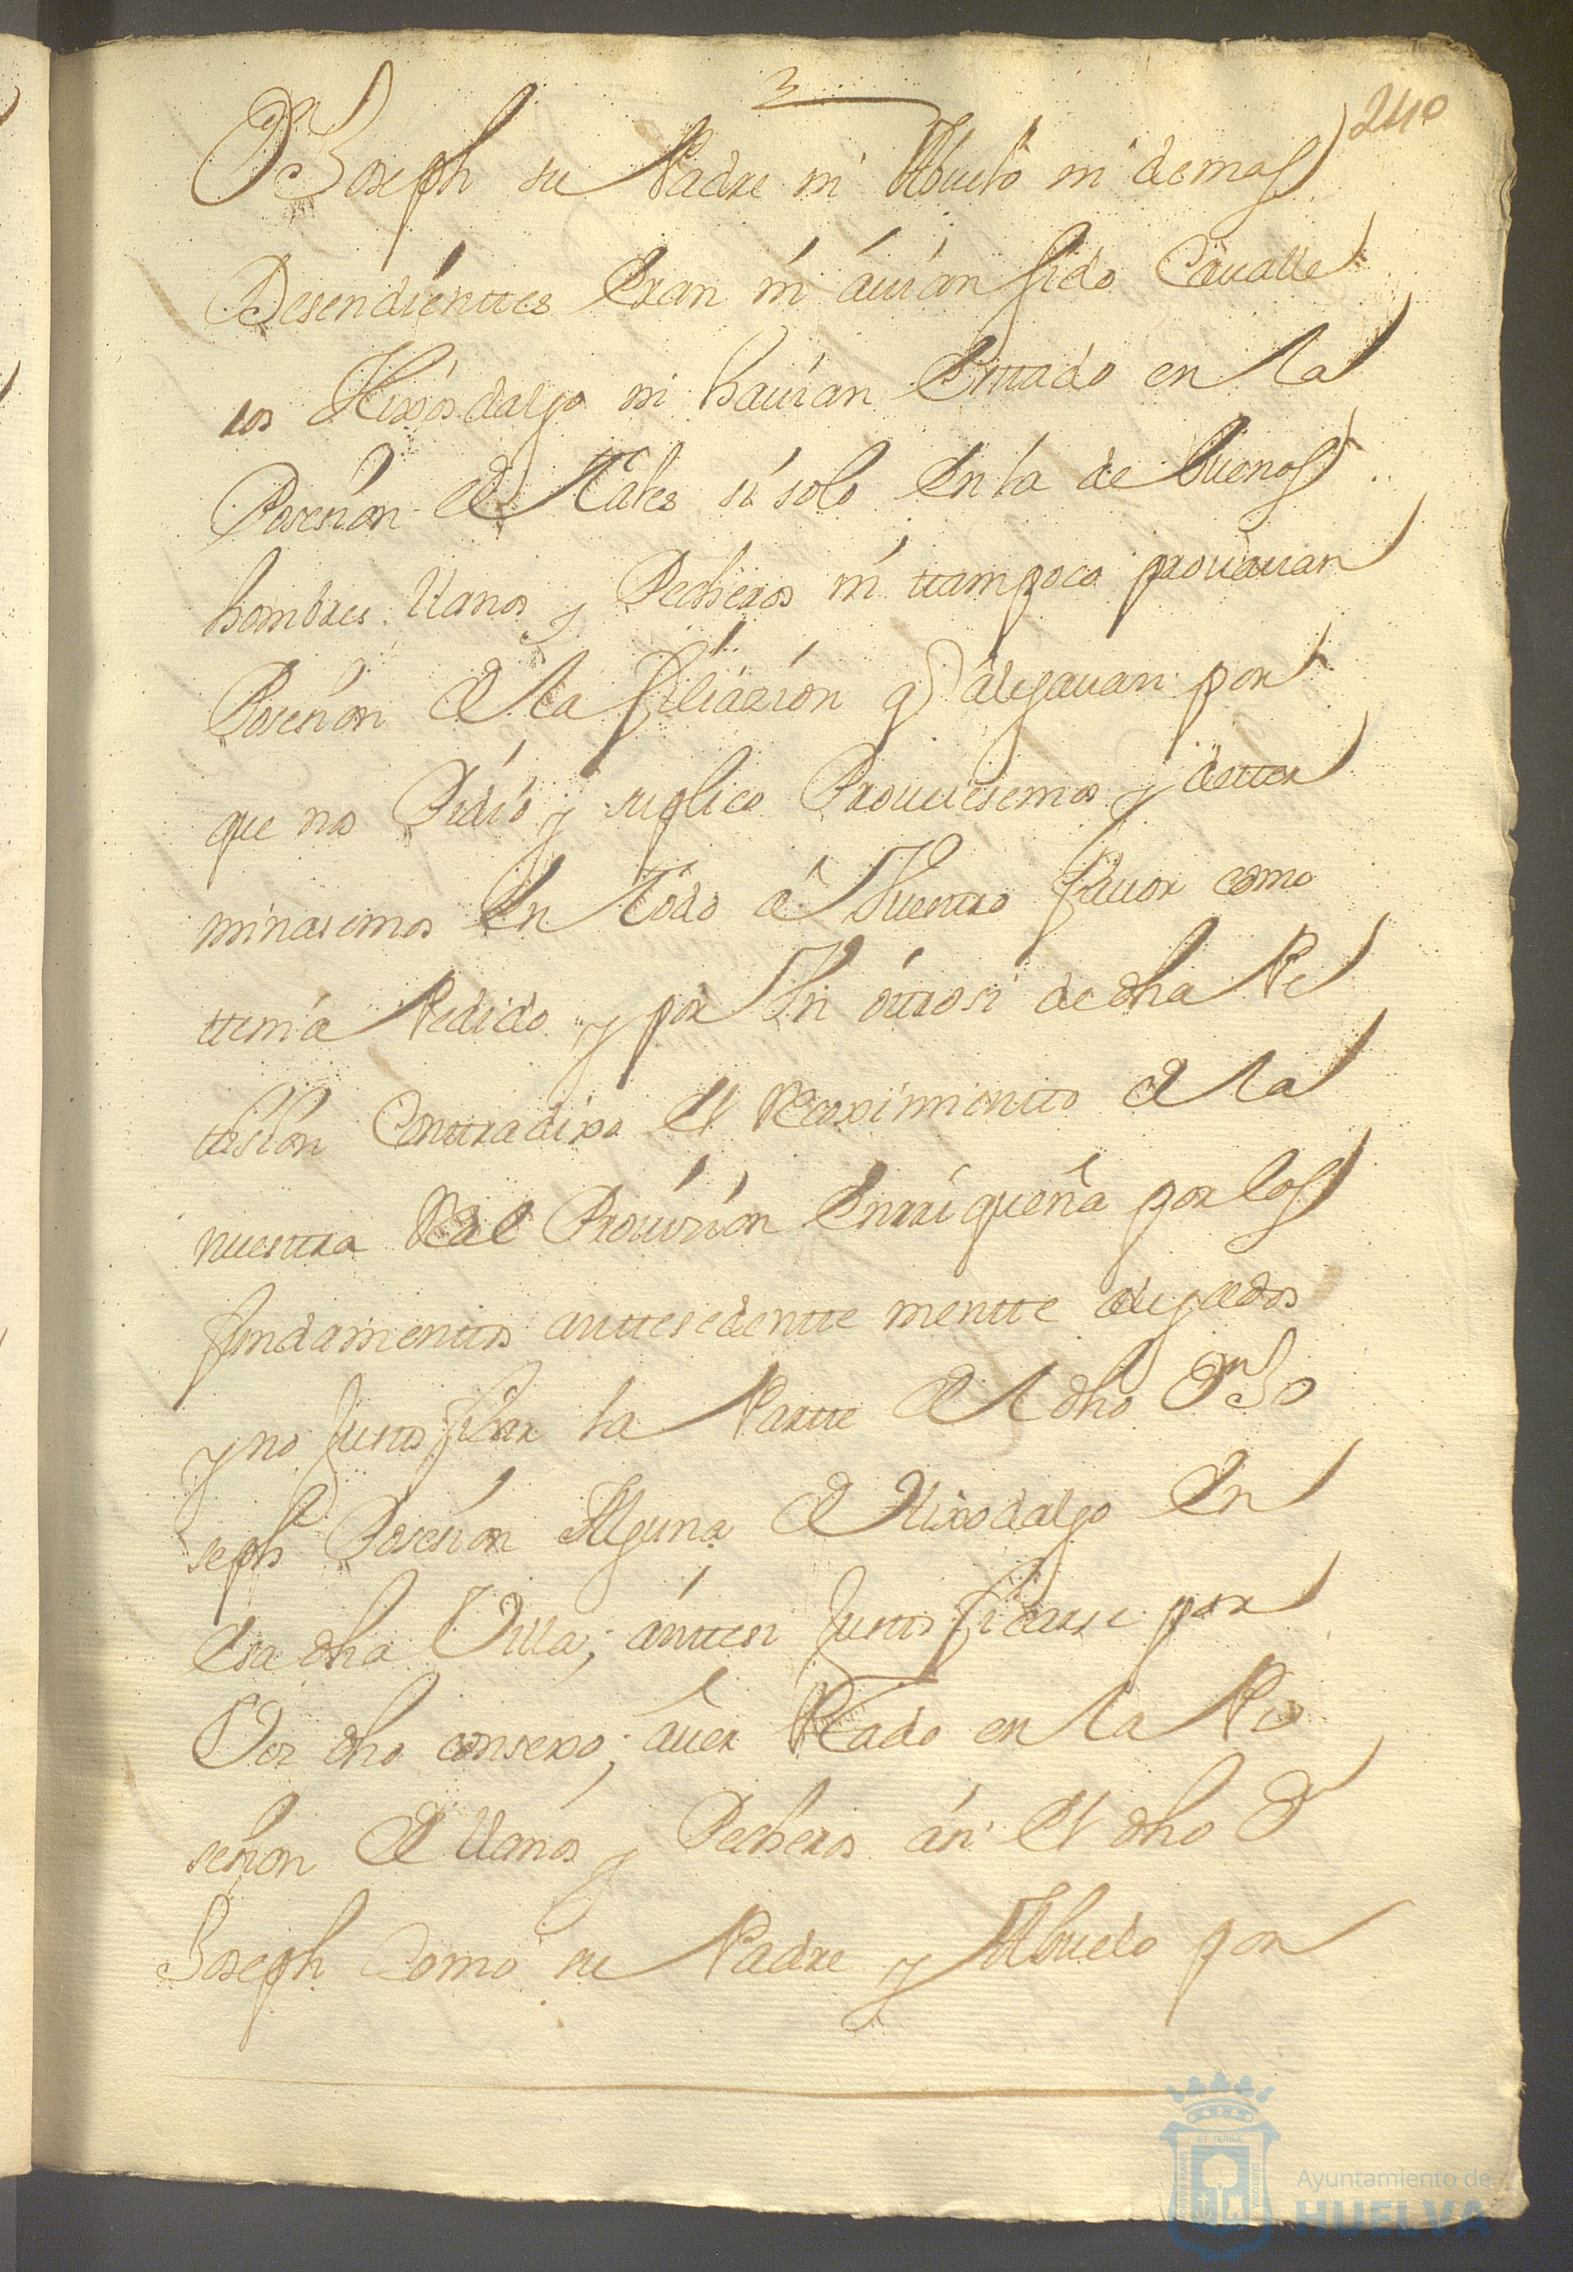 3
240
Dn Joseph su Padre ni Abuelo ni demas
Desendienttes Eran ni auian sido Caualle
ros Hixosdalgo ni hauian Esttado en la
Posesion de Tales si solo En la de buenos
hombres llanos y Pecheros ni ttampoco prouauan
Posesion de la filiazion q alegauan por
que nos Pidio y suplico Proueiesemos y detter
minasemos En Todo a Vuestro fauor como
ttenia Pedido y por Un ottrosi de dha Pe
tission Conttradixo El Recoximientto de la
nuesttra Real Prouizion Enrriqueña por los
fundamenttos anttesedentte mentte alegados
y no Justtificar la Partte del dho Dn Jo
seph Posesion Alguna de Hixodalgo En
esa dha Villa; anttesi Justtificarse por
Dor dho consexo; auer Estado en la Po
sesion de llanos y Pecheros asi El dho Dn
Joseph Como su Padre y Abuelo por
Ayuntamiento de
HUELVA